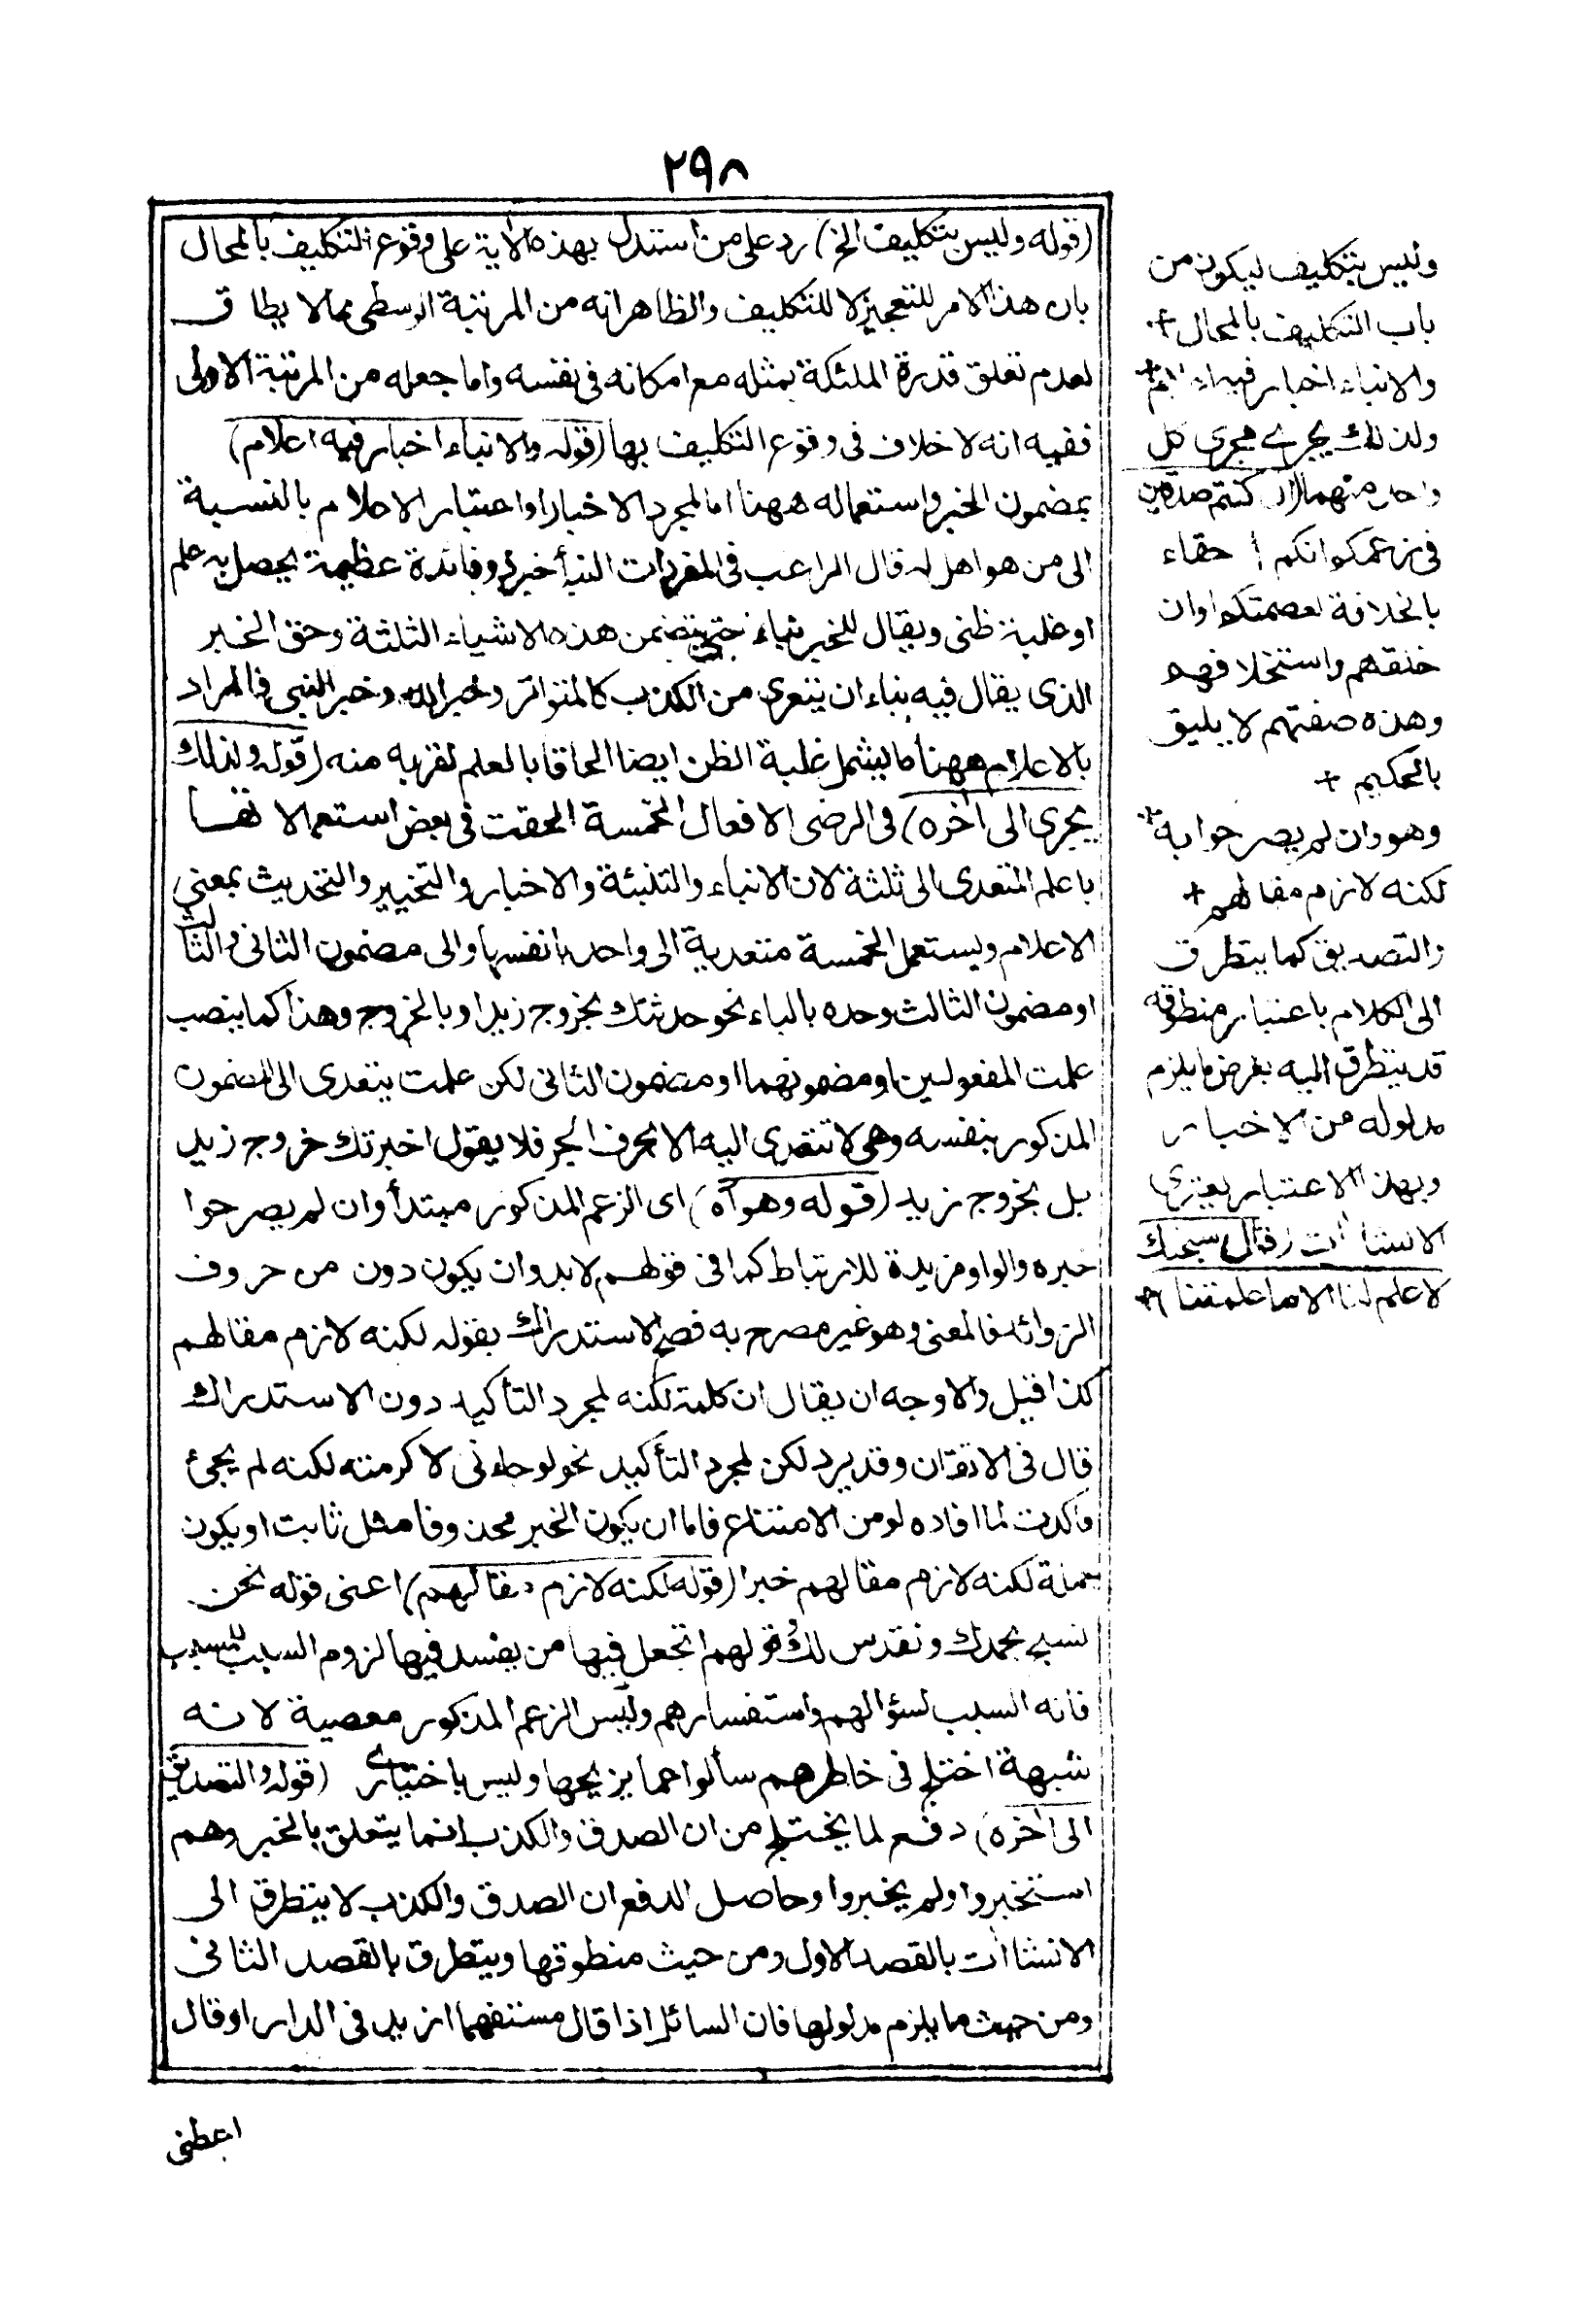 ٢٩٨
(قوله وليس بتكليف الخ) رد على من استدل بهذه الاية على وقوع التكليف بالمحال
بان هذا الامر للتعجيز لا للتكليف والظاهر انه من المرتبة الوسطى مما لا يطاق
لعدم تعلق قدرة الملئكة بمثله مع امكانه فى نفسه واما جعله من المرتبة الاولى
ففيه انه لا خلاف فى وقوع التكليف بها (قوله والانباء اخبار فيه اعلام)
بمضمون الخبر واستعماله ههنا اما لمجرد الاخبار او اعتبار الاعلام بالنسبة
الى من هو اهل له قال الراغب فى المفردات النبأ خبر ذو فائدة عظيمة يحصل به علم
او غلبة ظنى ويقال للخبر نباء حتى يتضمن هذه الاشياء الثلثة وحق الخبر
الذى يقال فيه نباء ان يتعرى من الكذب كالمتواتر وخبر الله وخبر النبى فالمراد
بالاعلام ههنا ما يشمل غلبة الظن ايضا الحاقا بالعلم لقربه منه (قوله ولذلك
يجرى الى اخره) فى الرضى الافعال الخمسة الحقت فى بعض استعمالاتها
باعلم المتعدى الى ثلثة لان الانباء والتنبئة والاخبار والتخبير والتحديث بمعنى
الاعلام ويستعمل الخمسة متعدية الى واحد بانفسها والى مضمون الثانى والثالث
او مضمون الثالث وحده بالباء نحو حدثتك بخروج زيد او بالخروج وهذا كما ينصب
علمت المفعولين او مضمونهما او مضمون الثانى لكن علمت يتعدى الى المضمون
المذكور بنفسه وهى لا تتعدى اليه الا بحرف الجر فلا يقول اخبرتك خروج زيد
بل بخروج زيد (قوله وهو آه) اى الزعم المذكور مبتدأ وان لم يصرحوا
خبره والواو مزيدة للارتباط كما فى قولهم لا بد وان يكون دون من حروف
الزوائد فالمعنى وهو غير مصرح به فصح الاستدراك بقوله لكنه لازم مقالهم
كذا قيل والاوجه ان يقال ان كلمة لكنه لمجرد التأكيد دون الاستدراك
قال فى الاتقان وقد يرد لكن لمجرد التأكيد نحو لو جاءنى لاكرمته لكنه لم يجئ
فاكدت لما افاده لو من الامتناع فاما ان يكون الخبر محذوفا مثل ثابت او يكون
جملة لكنه لازم مقالهم خبرا (قوله لكنه لازم مقالهم) اعنى قوله نحن
نسبح بحمدك ونقدس لك وقولهم اتجعل فيها من يفسد فيها لزوم السبب للمسبب
فانه السبب لسؤالهم واستفسارهم وليس الزعم المذكور معصية لانه
شبهة اختلج فى خاطرهم سألوا عما يزيحها وليس باختيارى (قوله والتصديق
الى اخره) دفع لما يختلج من ان الصدق والكذب انما يتعلق بالخبر وهم
استخبروا ولم يخبروا وحاصل الدفع ان الصدق والكذب لا يتطرق الى
الانشاآت بالقصد الاول ومن حيث منطوقها ويتطرق بالقصد الثانى
ومن حيث ما يلزم مدلولها فان السائل اذا قال مستفهما ازيد فى الدار او قال
اعطنى
وليس بتكليف ليكون من
باب التكليف بالمحال +
والانباء اخبار فيه اعلام +
ولذلك يجرى مجرى كل
واحد منهما (ان كنتم صدقين
فى زعمكم انكم احقاء
بالخلافة لعصمتكم او ان
خلقهم واستخلافهم
وهذه صفتهم لا يليق
بالحكيم +
وهو وان لم يصرحوا به +
لكنه لازم مقالهم +
والتصديق كما يتطرق
الى الكلام باعتبار منطوقه
قد يتطرق اليه بفرض ما يلزم
مدلوله من الاخبار
وبهذا الاعتبار يعترى
الانشاآت (قالوا سبحنك
لا علم لنا الا ما علمتنا) +